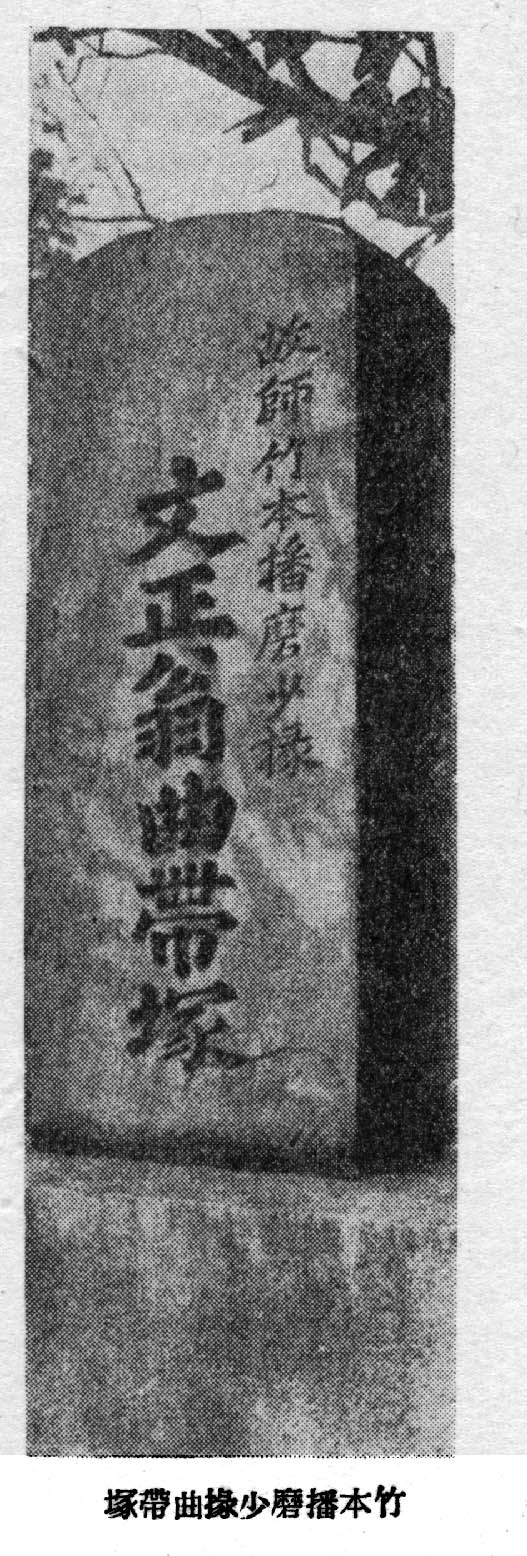 故師竹本播磨少掾
文正翁曲帯塚
竹本播磨少掾曲帶塚